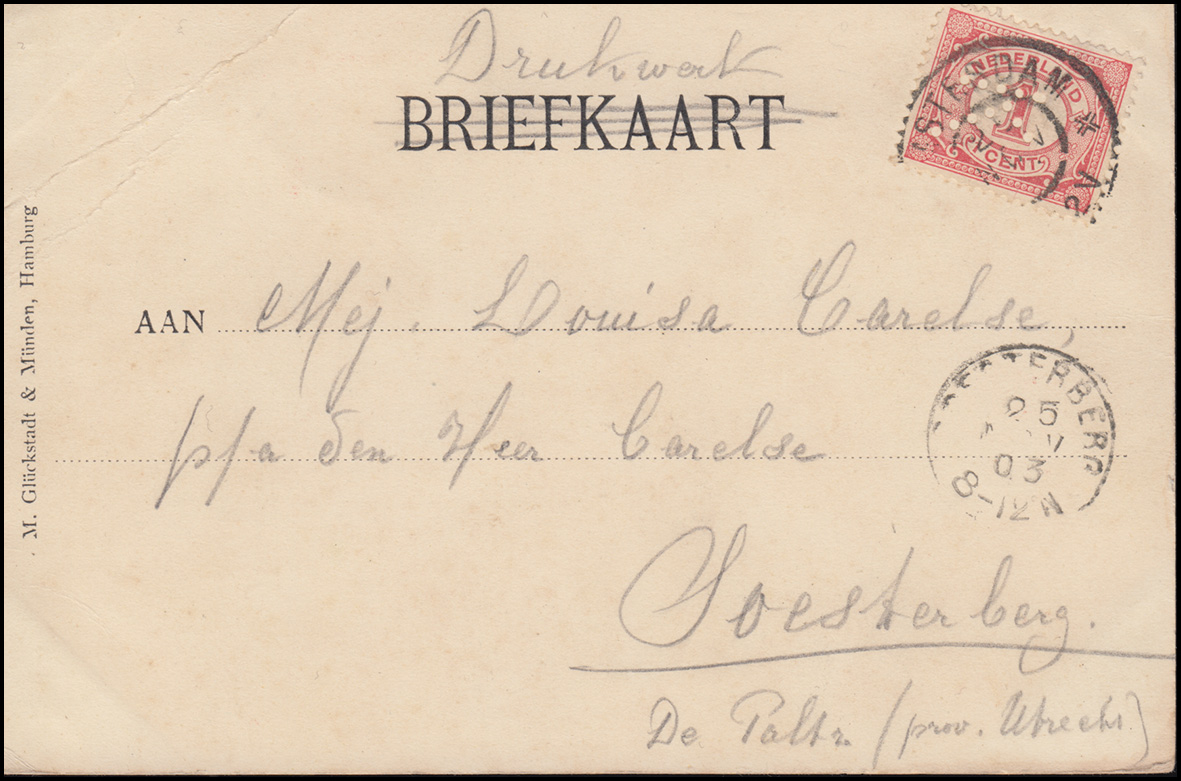 Drukwerk
BRIEFKAART
NEDERLAND
1
CENT
AAN Mej. Louisa Carelse,
p/a den Heer Carelse
Soesterberg.
De Paltz (prov. Utrecht)
SOESTERBERG
25
NOV
03
8-12N
M. Glückstadt & Münden, Hamburg